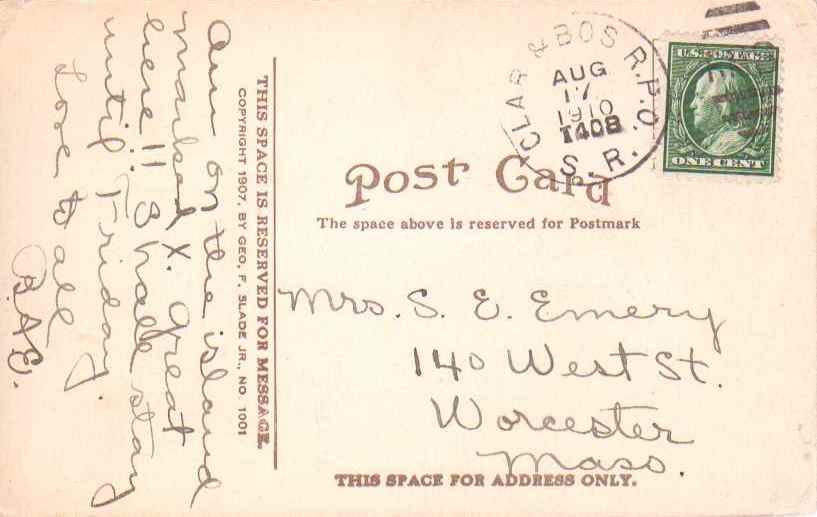 Am on the island
marked X. Great
here!! Shall stay
until Friday.
Love to all
B.A.E.
THIS SPACE IS RESERVED FOR MESSAGE.
COPYRIGHT 1907, BY GEO. F. SLADE JR., NO. 1001
CLAR & BOS R.P.O.
AUG
17
1910
T408
S R.
U.S. POSTAGE
ONE CENT
Post Card
The space above is reserved for Postmark
Mrs. S. E. Emery
140 West St.
Worcester
Mass.
THIS SPACE FOR ADDRESS ONLY.